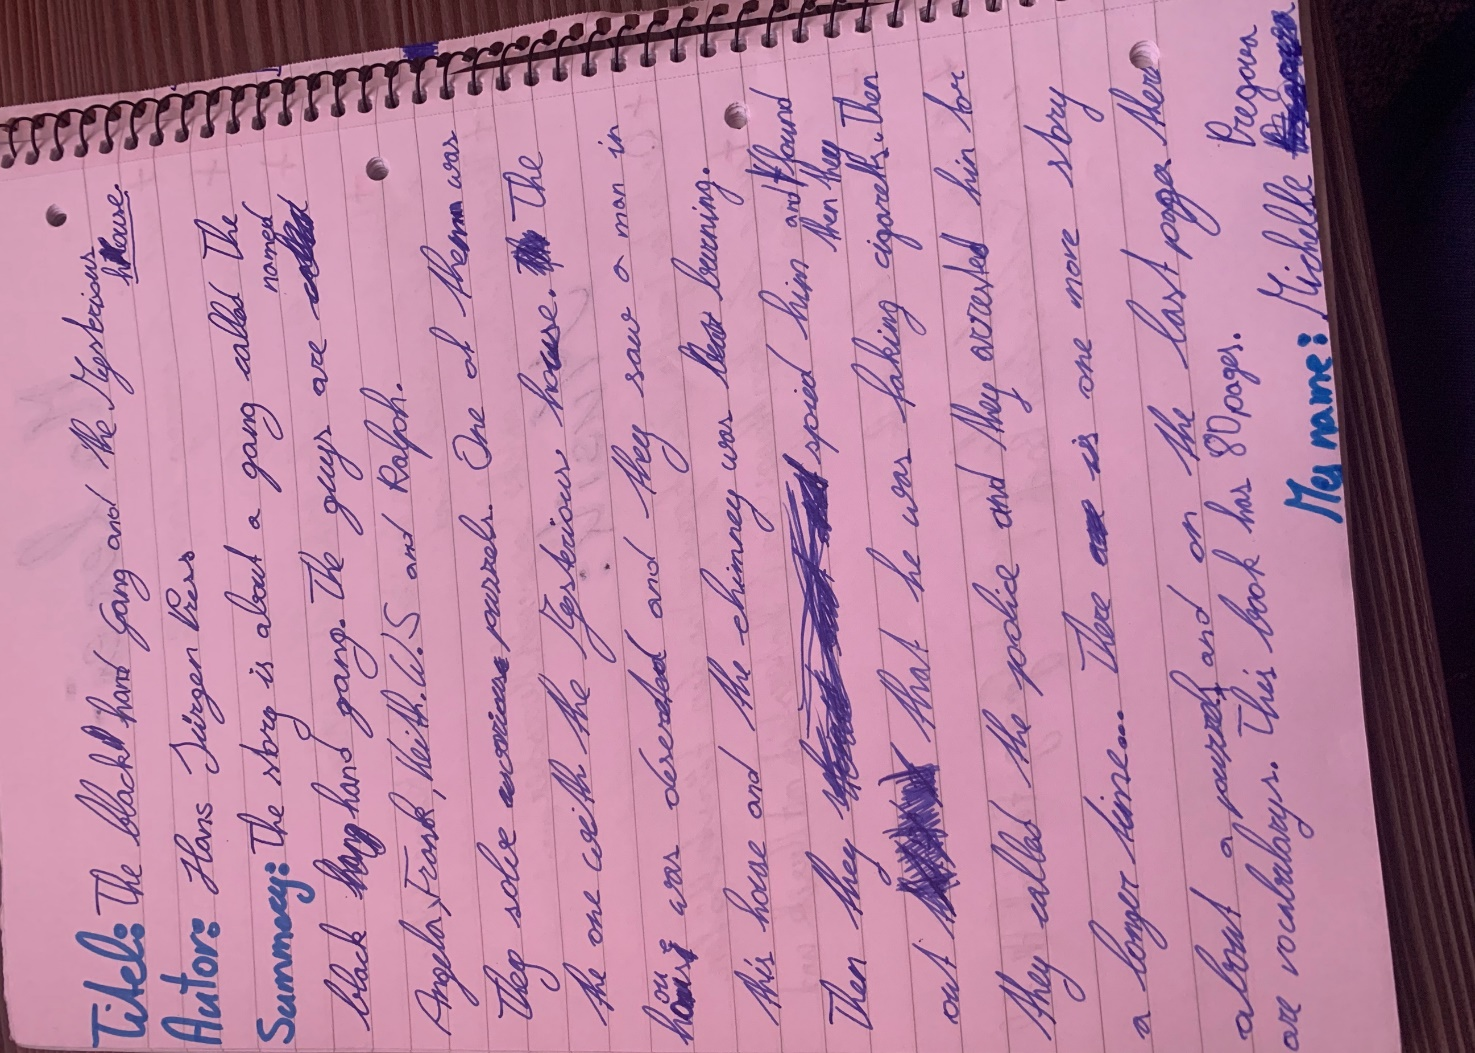 Titel: The black hand Gang and the Mysterious house.
Autor: Hans Jürgen Press
Summary: The story is about a gang called The
black hand gang. The guys are named
Angela, Frank, Keith. W.S and Ralph.
They solve puzzels. One of them was
the one with the Mysterious house. The
house was deserded and they saw a man in
this house and the chimney was burning.
Then they spied him and found
out that he was faking cigaretts. Then
they called the police and they arrested him for
a longer time... There is one more story
about a puzzel and on the last page there
are vocabularys. This book has 80 pages.
My name: Michelle Pregova